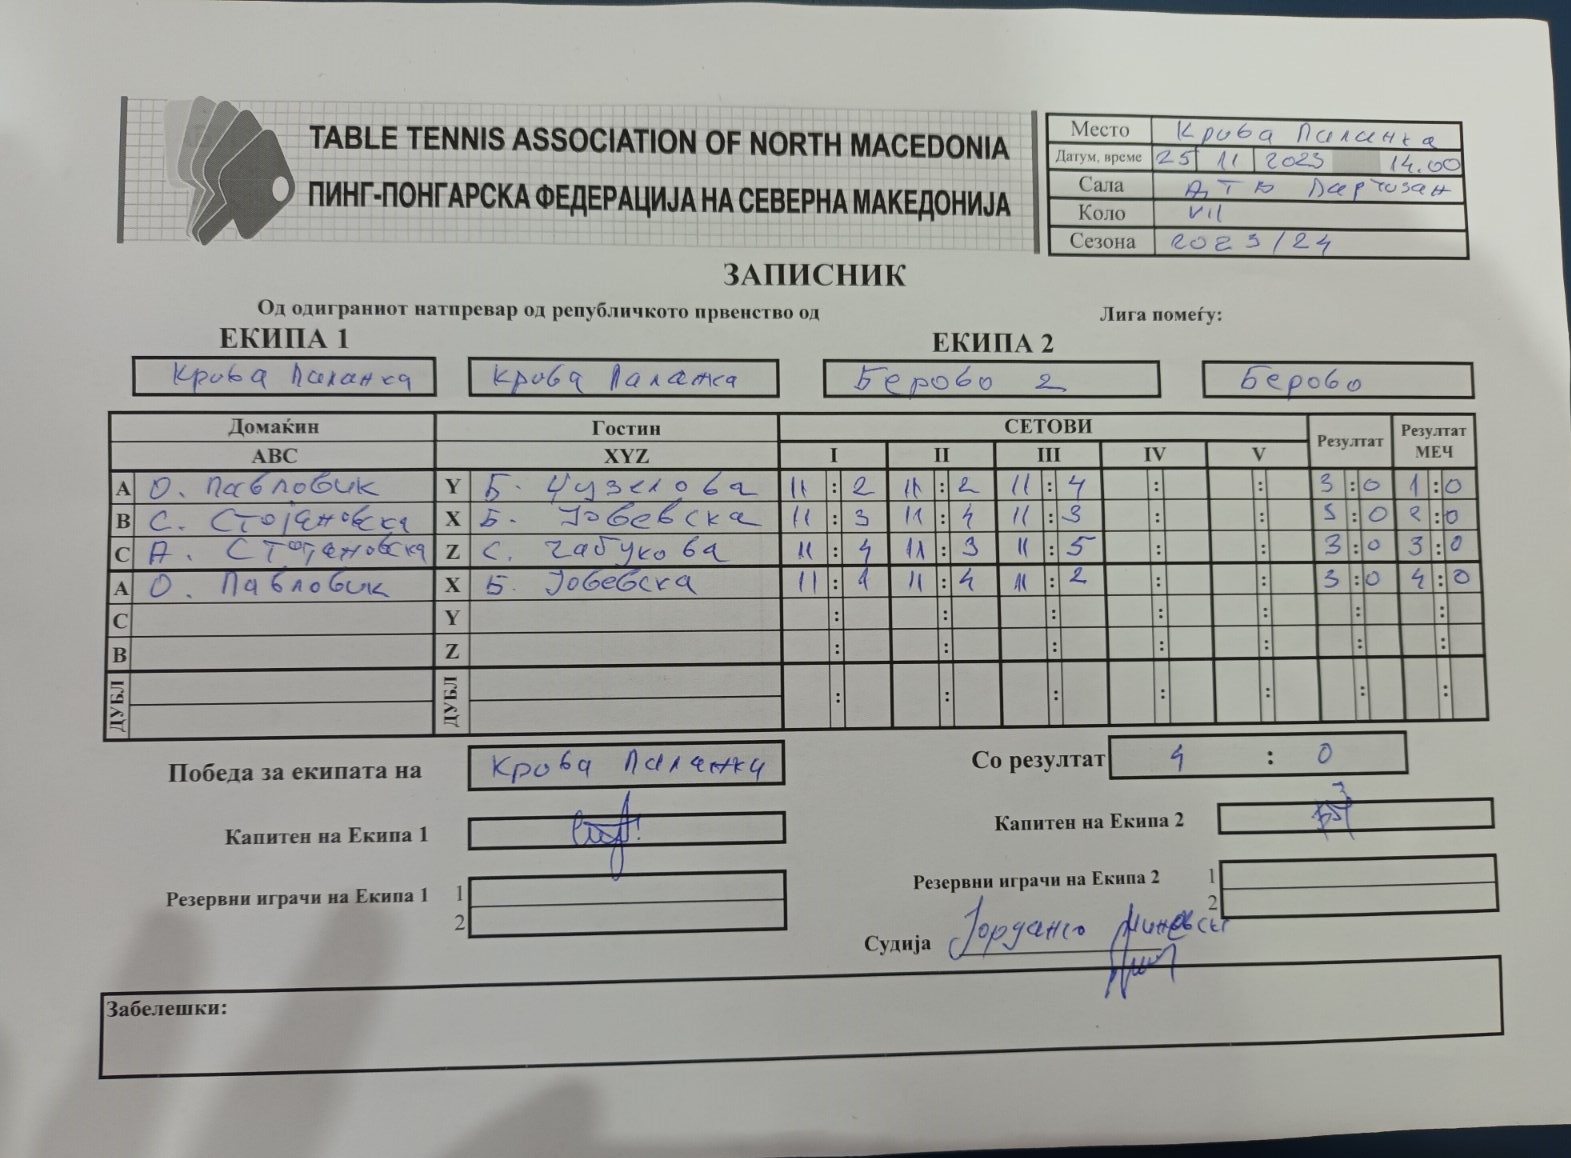 TABLE TENNIS ASSOCIATION OF NORTH MACEDONIA
ПИНГ-ПОНГАРСКА ФЕДЕРАЦИЈА НА СЕВЕРНА МАКЕДОНИЈА
Место Крива Паланка
Датум, време 25 11 2023 14.00
Сала ДТБ Партизан
Коло VII
Сезона 2023/24
ЗАПИСНИК
Од одиграниот натпревар од републичкото првенство од Лига помеѓу:
ЕКИПА 1 ЕКИПА 2
Крива Паланка Крива Паланка Берово 2 Берово
Домаќин Гостин СЕТОВИ Резултат Резултат МЕЧ
ABC XYZ I II III IV V
A О. Павловиќ Y Б. Чузелова 11 : 2 11 : 2 11 : 4 : : 3 : 0 1 : 0
B С. Стојановска X Б. Јовевска 11 : 3 11 : 4 11 : 3 : : 3 : 0 2 : 0
C А. Стојановска Z С. Чабукова 11 : 4 11 : 3 11 : 5 : : 3 : 0 3 : 0
A О. Павловиќ X Б. Јовевска 11 : 1 11 : 4 11 : 2 : : 3 : 0 4 : 0
C Y : : : : : : :
B Z : : : : : : :
ДУБЛ ДУБЛ : : : : : : :
Победа за екипата на Крива Паланка Со резултат 4 : 0
Капитен на Екипа 1 Капитен на Екипа 2
Резервни играчи на Екипа 1 1 2 Резервни играчи на Екипа 2 1 2
Судија Јорданчо Миновски
Забелешки: